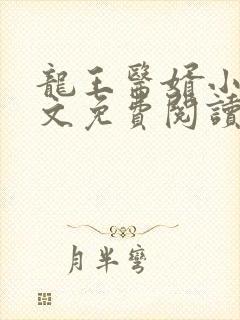 龍王醫婿小
文免費閱讀
月半彎